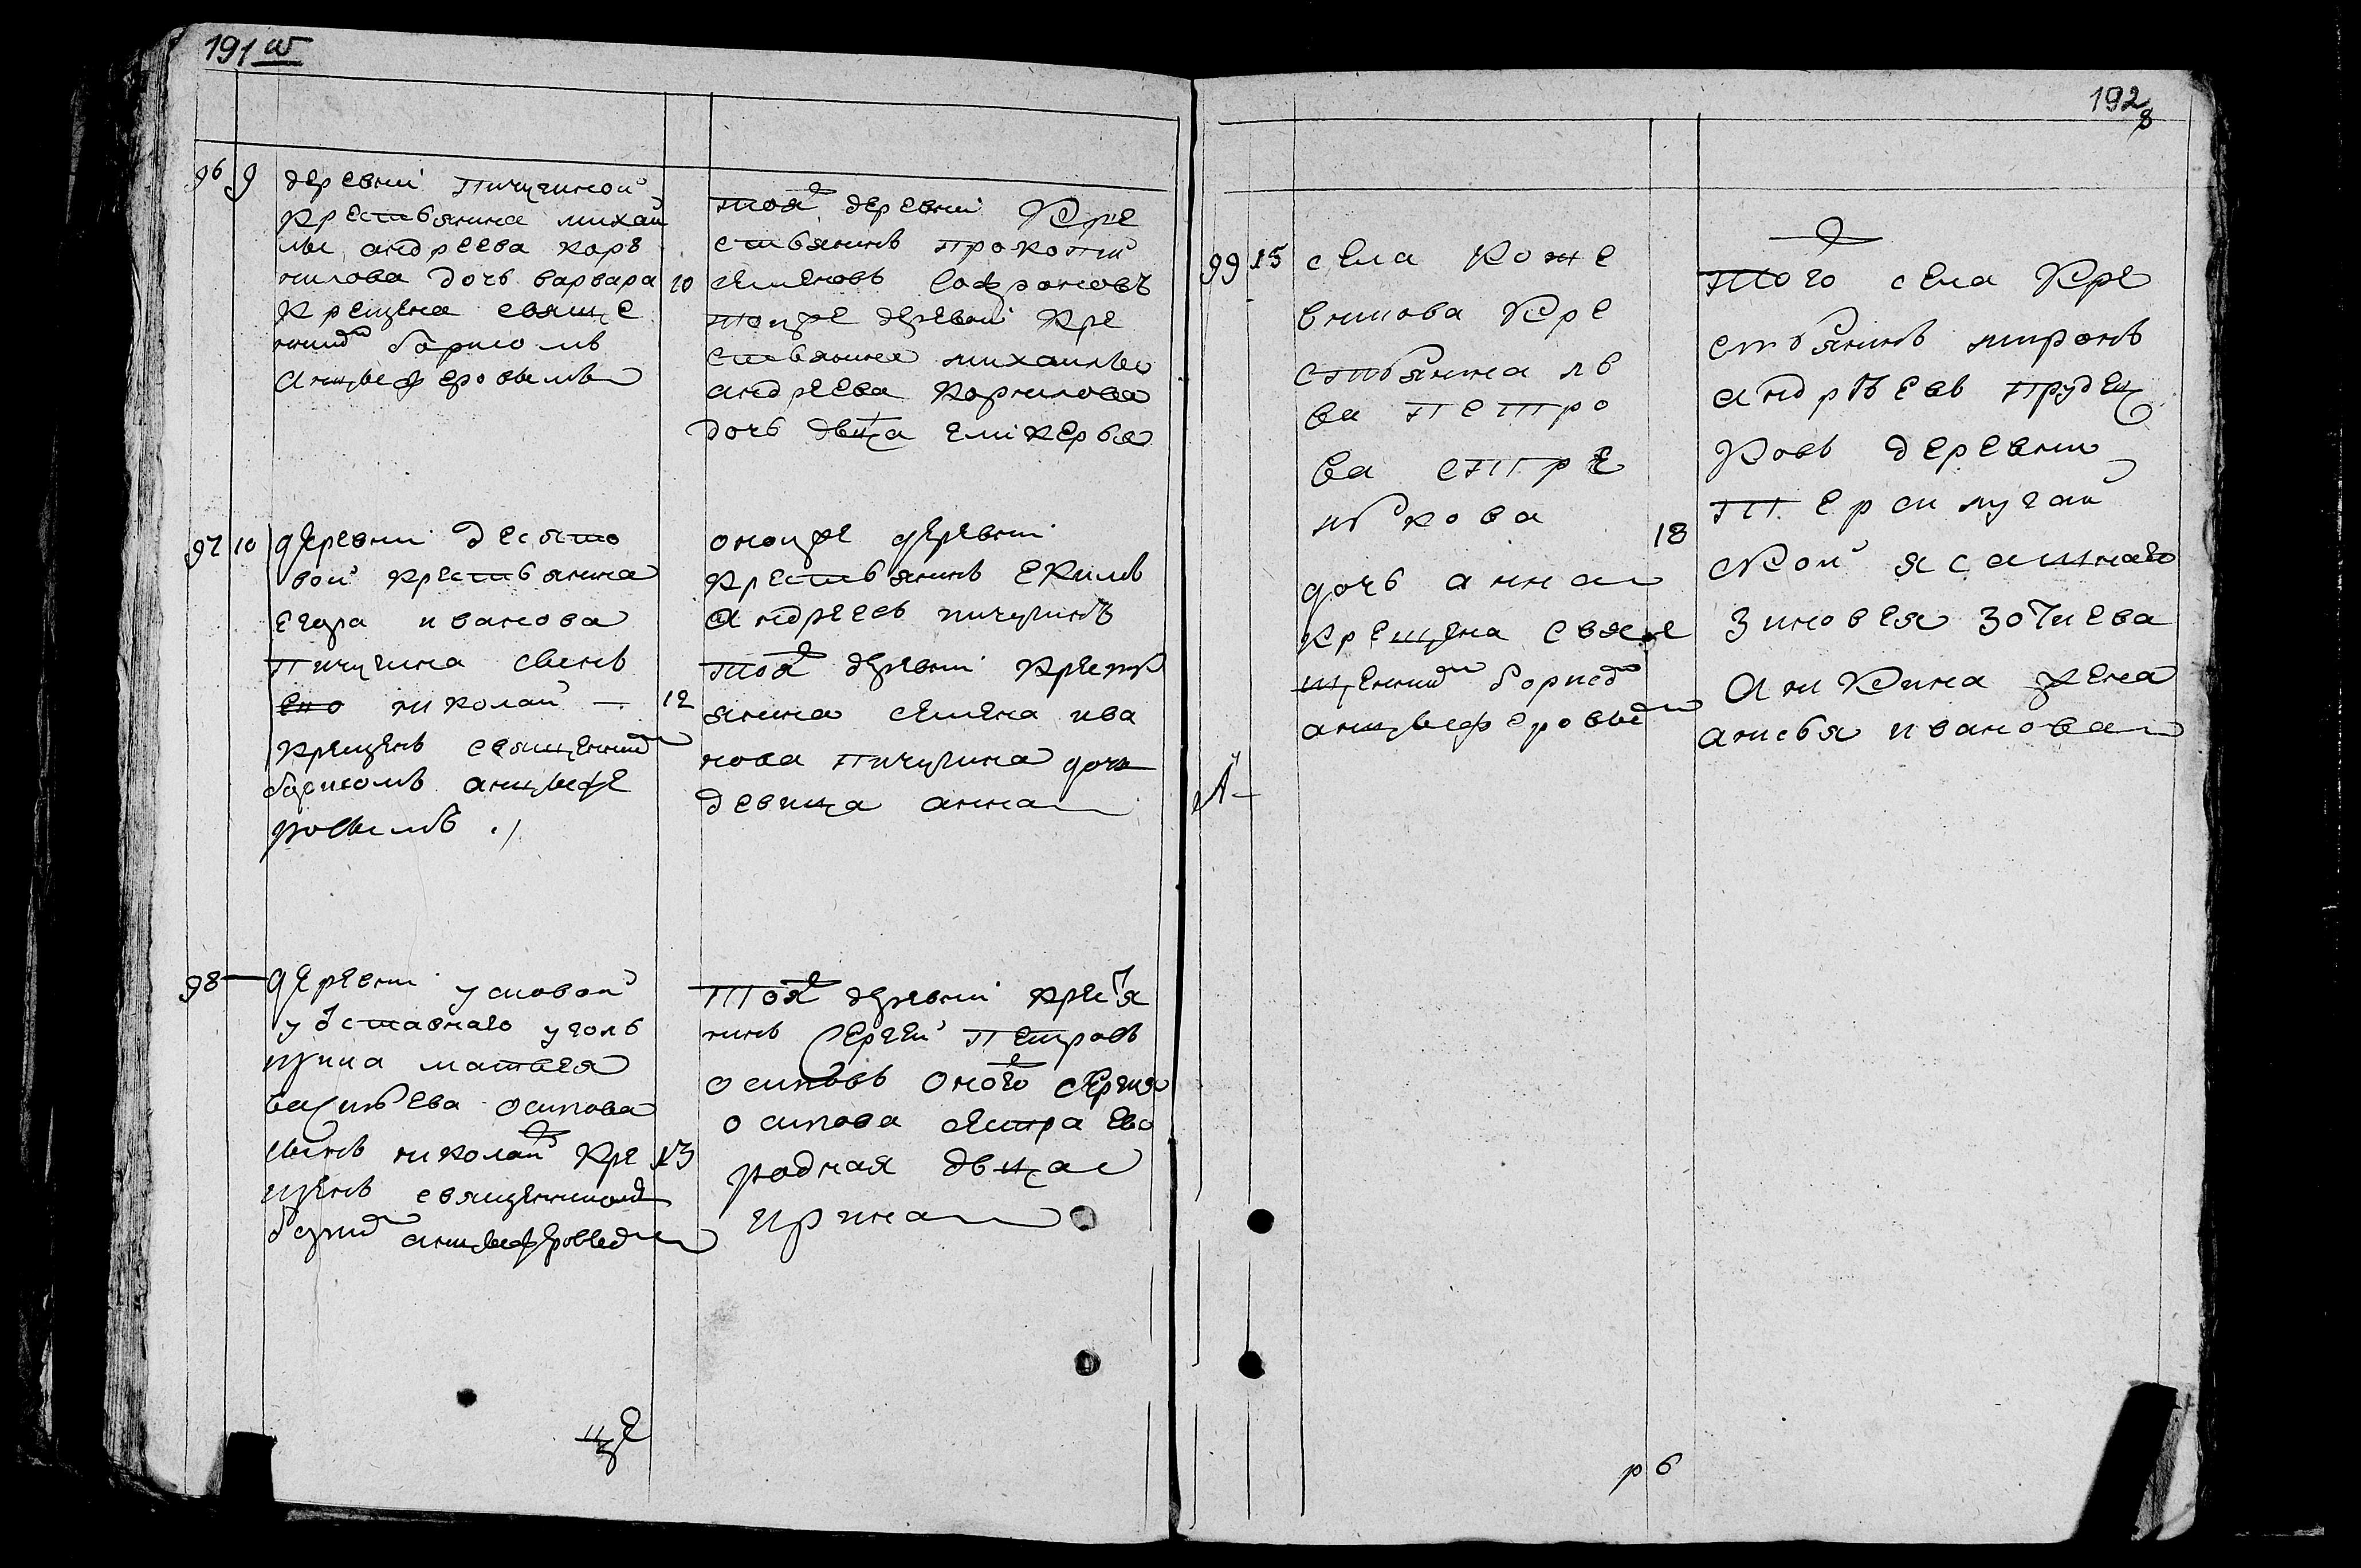 191 об
96 9 деревни Пичугиной
крестьянина михаи
лы андреева кор
нилова дочь варвара
крещена свяще
нник борисомъ
анцыферовымъ
10
той деревни Кре
стьянинъ прокопий
семеновъ Сафроновъ
тояже деревни кре
стьянина михаилы
андреева корнилова
дочь двца гликерья
97 10 деревни десято
вой крестьянина
егора иванова
Пичугина сынъ
ево николай —
крещенъ священник
борисомъ анцыфе
ровымъ
12
оноиже деревни
крестьянинъ
андреевъ пичугинъ
той деревни крестъ
янина семена ива
нова пичугина дочь
девица анна
98 — деревни усповой
уставнаго уголь
щика матвея
васильева осипова
сынъ николай кре
щенъ священником
борис анцыферовы
13
той деревни крестья
нинъ Сергей Петровъ
осиповъ оного сергия
осипова сестра ево
родная двца
ирина
192
99 15 села Коже
вникова Кре
стьянина ль
ва Петро
ва стре
лкова
дочь анна
крещена свя
щенник борис
анцыферовы
18
того села Кре
стьянинъ миронъ
андрѣевъ прудни
ковъ деревни
Терсилугай
ской ясашнаго
Зиновея Зотиева
Аникина жена
анисья иванова
рб